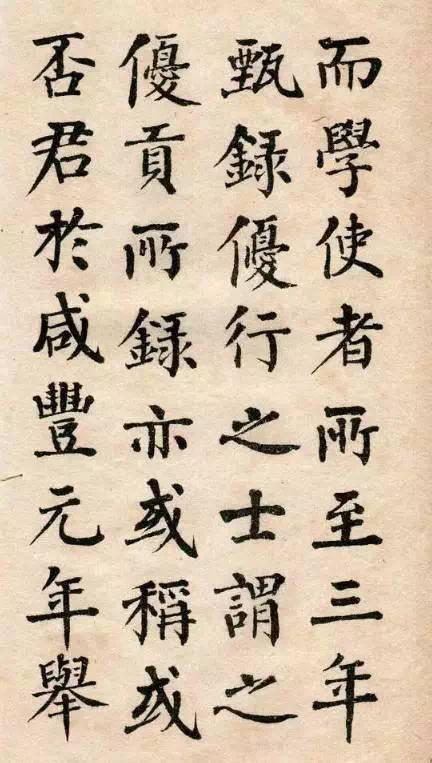 而學使者所至三年
甄錄優行之士謂之
優貢所錄亦或稱或
否君於咸豐元年舉